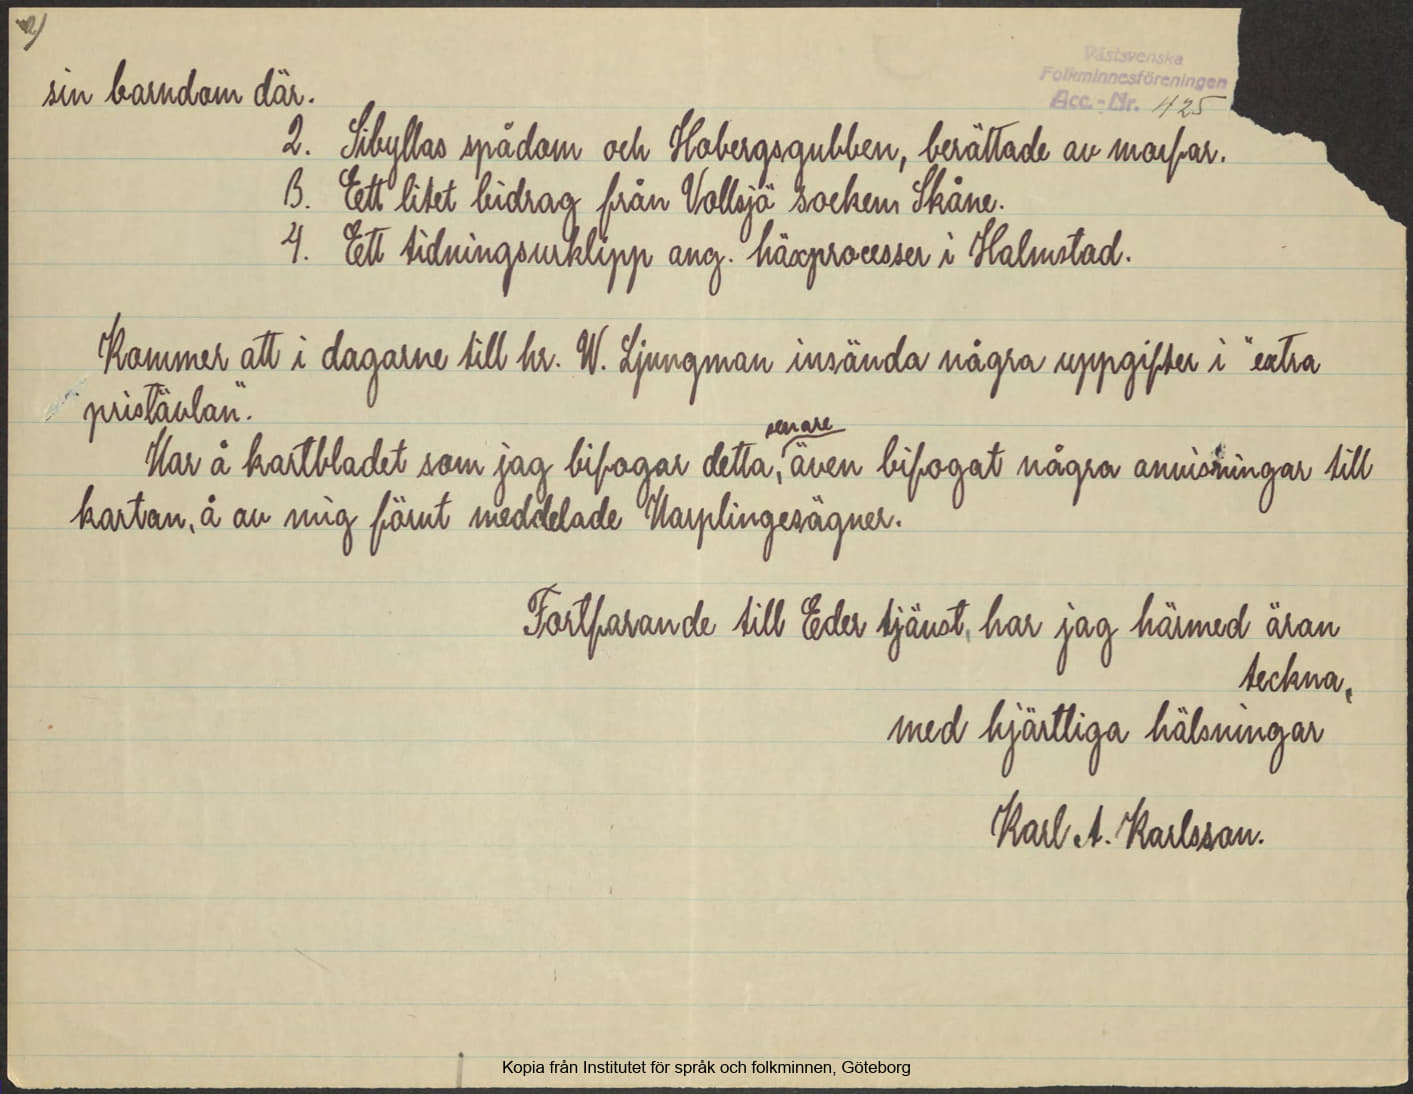 2)
Västsvenska
Folkminnesföreningen
Acc.-Nr. 425
sin barndom där.
2. Sibyllas spådom och Hobergsgubben, berättade av morfar.
3. Eett litet bidrag från Vollsjö socken Skåne.
4. Ett tidningsurklipp ang. häxprocesser i Halmstad.
Kommer att i dagarne till hr. W. Ljungman insända några uppgifter i "extra
pristävlan".
senare
Har å kartbladet som jag bifogar detta, även bifogat några anvisningar till
kartan, å av mig förut meddelade Harplingesägner.
Fortfarande till Eder tjänst, har jag härmed äran
teckna,
med hjärtliga hälsningar
Karl A. Karlsson.
Kopia från Institutet för språk och folkminnen, Göteborg